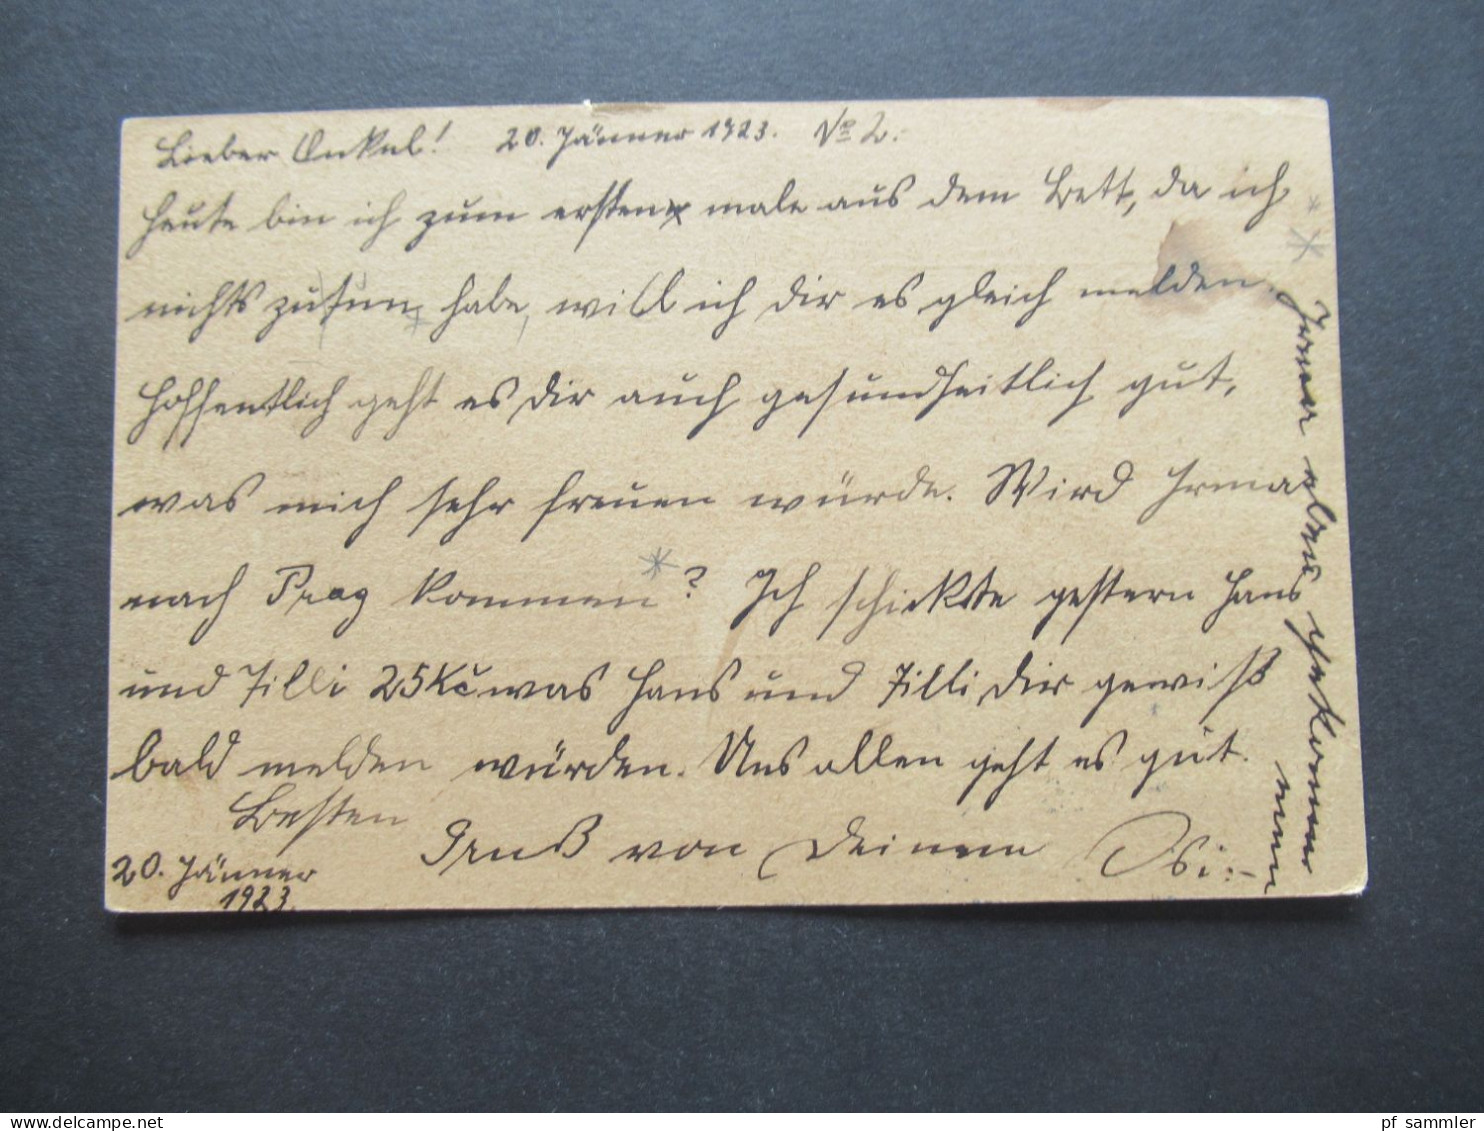 Lieber Onkel! 20. Jänner 1923. No 2.-
Heute bin ich zum ersten male aus dem Bett, da ich
nichts zu tun habe, will ich dir es gleich melden.
Hoffentlich geht es dir auch gesundheitlich gut,
was mich sehr freuen würde. Wird Irma
nach Prag kommen? Ich schickte gestern Hans
und Tilli 25Kč was Hans und Tilli dir gewiß
bald melden würden. Uns allen geht es gut.
Besten
Gruß von Deinem
20. Jänner
1923.
pf sammler
delcampe.net